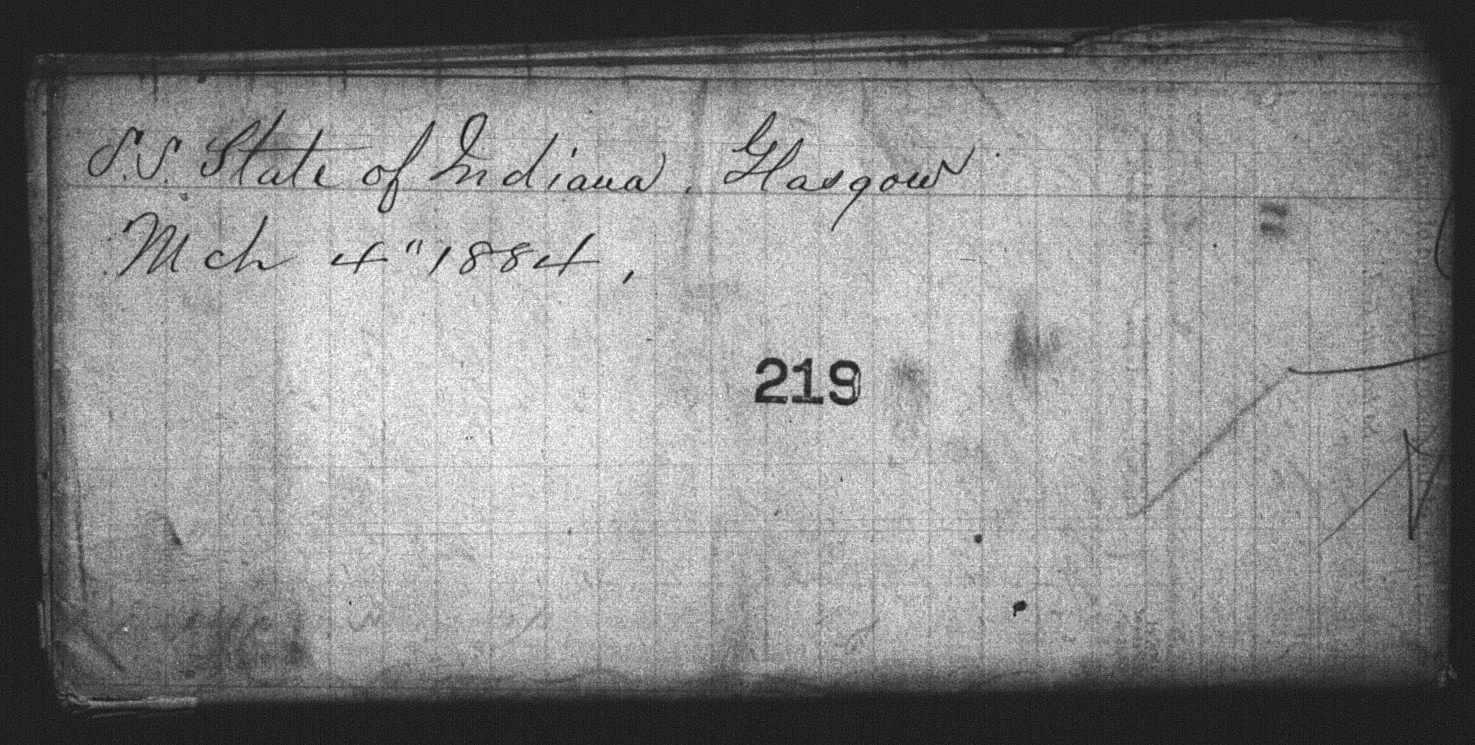 S.S. State of Indiana. Glasgow
Mch 4" 1884,
219